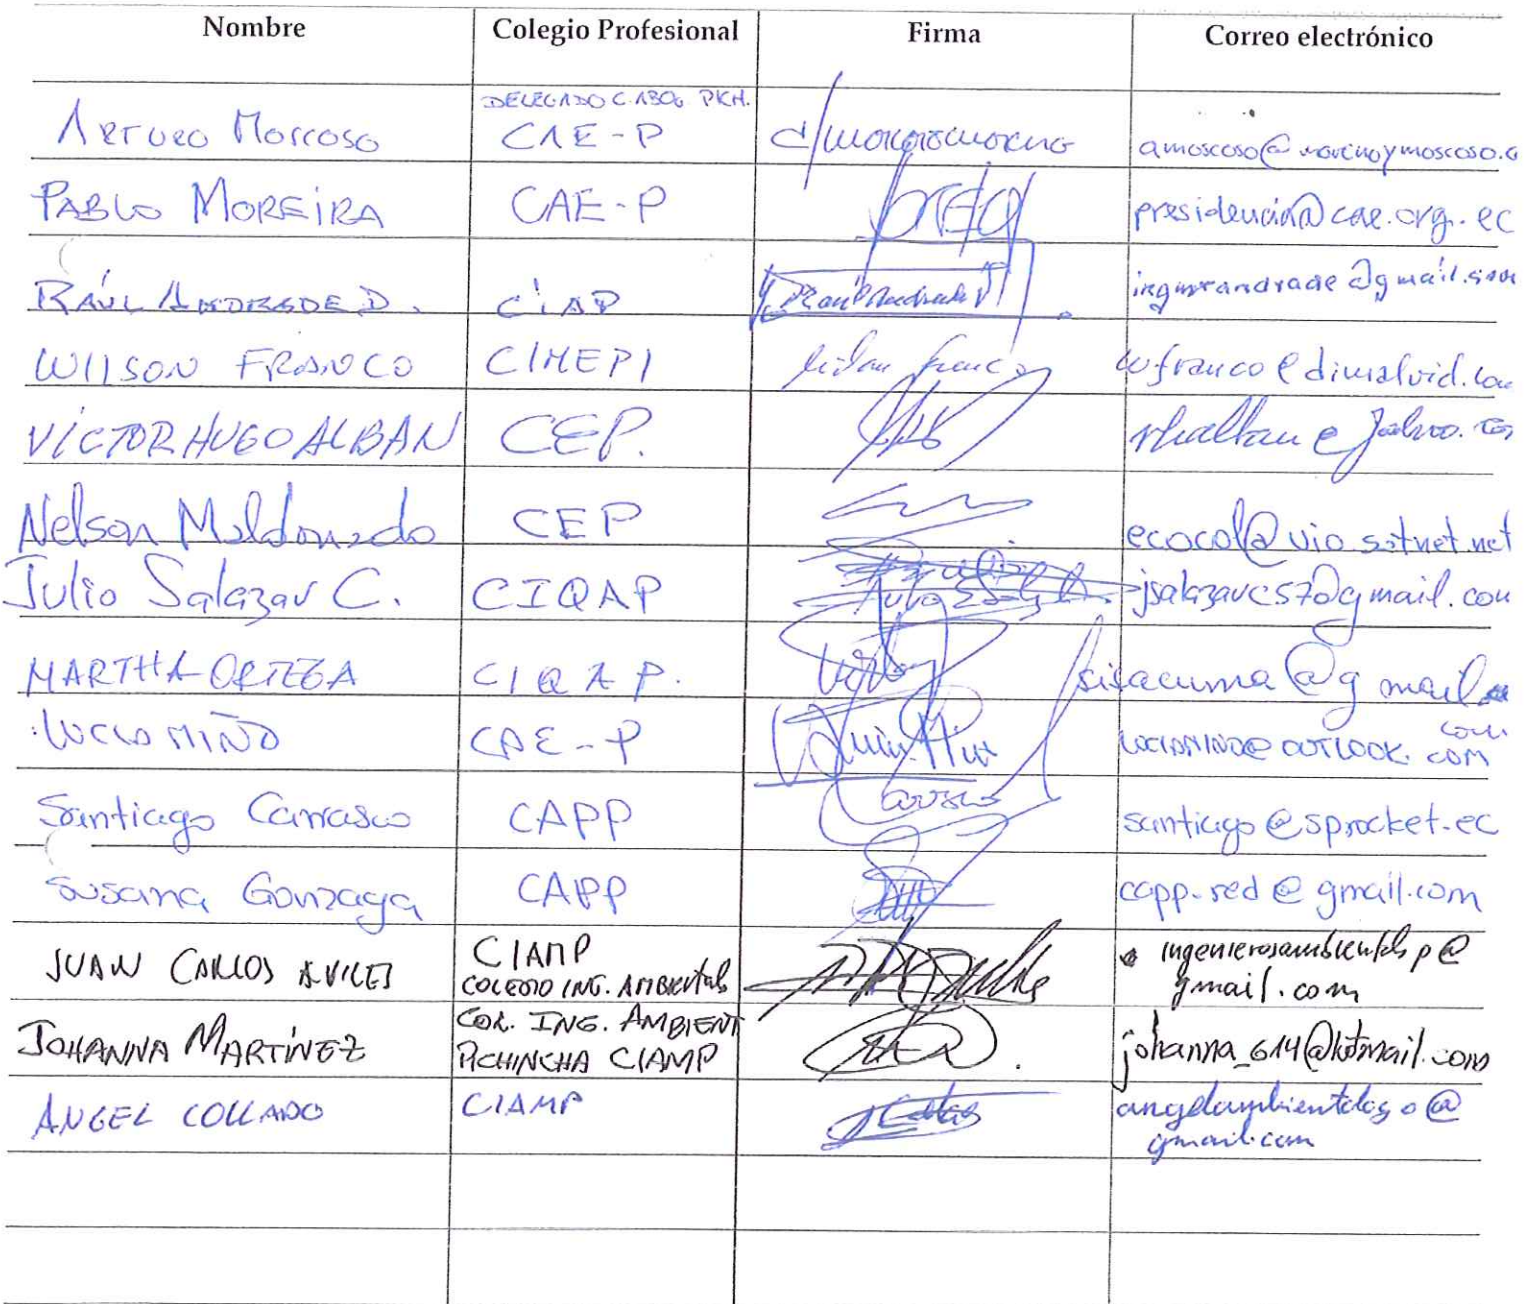 Nombre Colegio Profesional Firma Correo electrónico
DELEGADO C. ABOG PICH.
Arturo Moscoso CAE-P amoscoso@morenoymoscoso.c
PABLO MOREIRA CAE-P presidencia@cae.org.ec
RAÚL ANDRADE D. CIAP Raúl Andrade ingmrandrade@gmail.com
WILSON FRANCO CIMEPI Wilson Franco wfranco@dimalvid.com
VÍCTOR HUGO ALBAN CEP. vhalban@yahoo.com
Nelson Maldonado CEP ecocol@uio.satnet.net
Julio Salazar C. CIQAP jsalazarcs7@gmail.com
MARTHA ORTEGA CIQAP. sisacuma@gmail
com
LUCIA MIÑO CAE-P LUCIAMINO@OUTLOOK.COM
Santiago Carrasco CAPP santiago@sprocket.ec
Susana Gonzaga CAPP capp-red@gmail.com
JUAN CARLOS AVILES CIAMP ingenierosambientalsp@
COLEGIO ING. AMBIENTALES gmail.com
COL. ING. AMBIENT
JOHANNA MARTÍNEZ PICHINCHA CIAMP johanna_614@hotmail.com
ANGEL COLLADO CIAMP angelambientalogo@
gmail.com